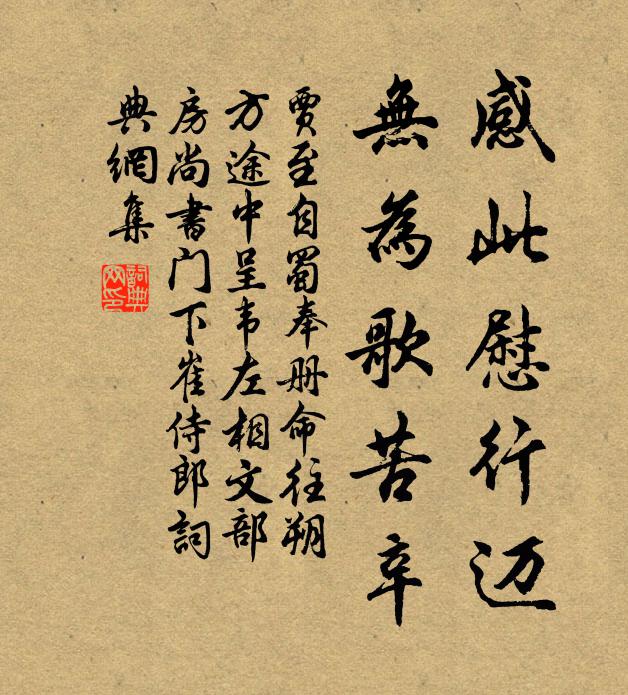 感此慰行迈
無為歌苦辛
賈至自蜀奉册命往朔
方途中呈韦左相文部
房尚書门下崔侍郎詞
典網集
詞典
网印